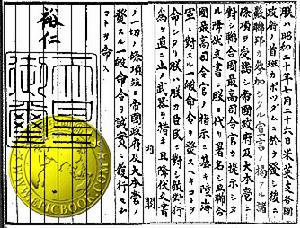 朕ハ昭和二十年七月二十六日米英支各國
政府ノ首班カポツダムニ於テ發シ後ニ
蘇聯邦カ參加シタル宣言ノ掲クル諸
條項ヲ受諾シ帝國政府及大本營ニ
對シ聯合國最高司令官カ提示シタ
ル降伏文書ニ朕ニ代リ署名シ且聯合
國最高司令官ノ指示ニ基キ陸海
軍ニ對スル一般命令ヲ發スヘキコトヲ
命シタリ朕ハ朕カ臣民ニ對シ敵對行
爲ヲ直ニ止メ武器ヲ措キ且降伏文書
ノ一切ノ條項竝ニ帝國政府及大本營ノ
發スル一般命令ヲ誠實ニ履行セム
コトヲ命ス
裕仁
天皇
御璽
EPICBOOK.COM